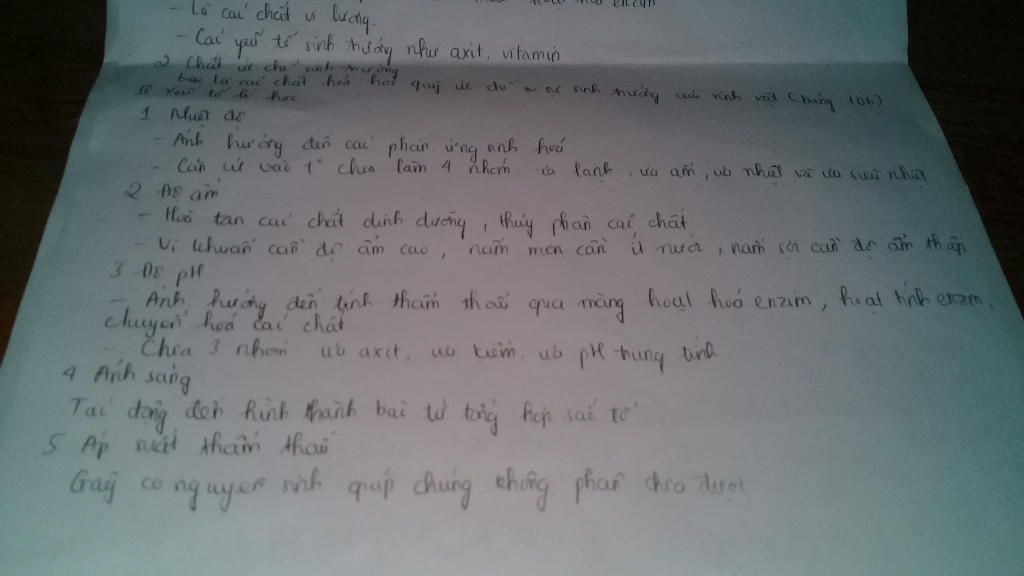 - Là các chất vi lượng.
- Các yếu tố sinh trưởng như axit, vitamin
2 Chất ức chế sinh trưởng
là các chất hoá học ức chế sự sinh trưởng của sinh vật (bảng 106)
II Yếu tố lí học
1 Nhiệt độ
- Ảnh hưởng đến các phản ứng sinh hoá
- Căn cứ vào t° chia làm 4 nhóm: ưa lạnh, ưa ấm, ưa nhiệt và ưa siêu nhiệt
2 Độ ẩm
- Hoà tan các chất dinh dưỡng, thủy phân các chất
- Vi khuẩn cần độ ẩm cao, nấm men cần ít nước, nấm sợi cần độ ẩm thấp
3 Độ pH
- Ảnh hưởng đến tính thấm thấu qua màng hoạt hoá enzim, hoạt tính enzim,
chuyển hoá các chất
- Chia 3 nhóm ưa axit, ưa kiềm, ưa pH trung tính
4 Ánh sáng
Tác động đến hình thành bào tử tổng hợp sắc tố
5 Áp suất thẩm thấu
Gây co nguyên sinh giúp chúng không phân chia được